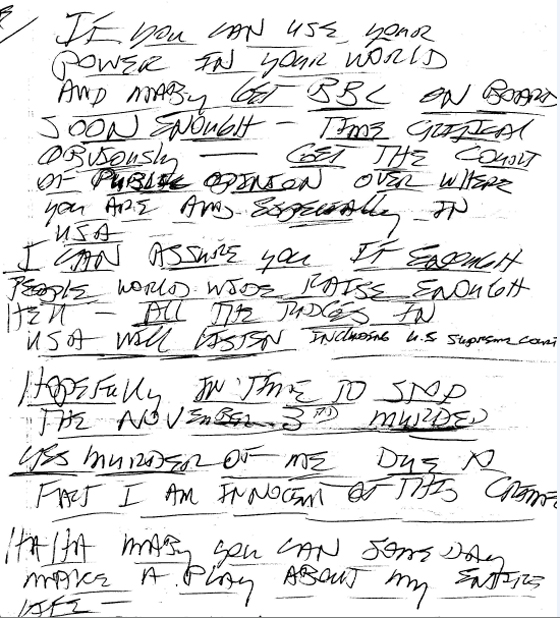 IF YOU CAN USE YOUR
POWER IN YOUR WORLD
AND MABY GET BBC ON BOARD
SOON ENOUGH – TIME CRITICAL
OBVIOUSLY — GET THE COURT
OF PUBLIC OPINION OVER WHERE
YOU ARE AND ESPECIALLY IN
USA
I CAN ASSURE YOU IF ENOUGH
PEOPLE WORLD WIDE RAISE ENOUGH
HELL – ALL THE JUDGES IN
USA WILL LISTEN INCLUDING U.S SUPREME COURT
HOPEFULLY IN TIME TO STOP
THE NOVEMBER 3RD MURDER
YES MURDER OF ME DUE TO
FACT I AM INNOCENT OF THIS CRIME
HA HA MABY YOU CAN SOME DAY
MAKE A PLAY ABOUT MY ENTIRE
LIFE –